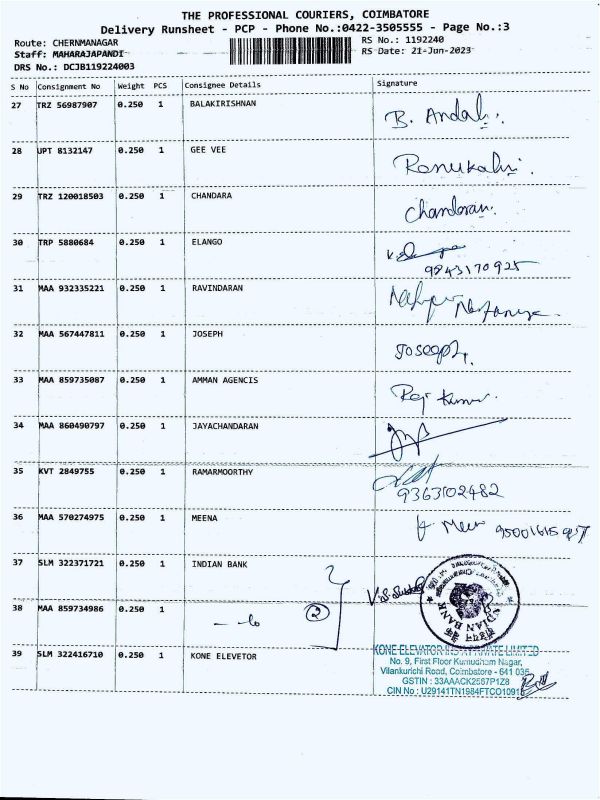 THE PROFESSIONAL COURIERS, COIMBATORE
Delivery Runsheet - PCP - Phone No.:0422-3505555 - Page No.:3
Route: CHERNMANAGAR RS No.: 1192240
Staff: MAHARAJAPANDI RS Date: 21-Jun-2023
DRS No.: DCJB119224003
S No Consignment No Weight PCS Consignee Details Signature
27 TRZ 56987907 0.250 1 BALAKIRISHNAN B. Andal
28 UPT 8132147 0.250 1 GEE VEE
29 TRZ 120018503 0.250 1 CHANDARA Chandaran.
30 TRP 5880684 0.250 1 ELANGO
9843170925
31 MAA 932335221 0.250 1 RAVINDARAN
32 MAA 567447811 0.250 1 JOSEPH Joseph
33 MAA 859735087 0.250 1 AMMAN AGENCIS Raj Kumar.
34 MAA 860490797 0.250 1 JAYACHANDARAN
35 KVT 2849755 0.250 1 RAMARMOORTHY
9363102482
36 MAA 570274975 0.250 1 MEENA
37 SLM 322371721 0.250 1 INDIAN BANK
INDIAN BANK
38 MAA 859734986 0.250 1 2
39 SLM 322416710 0.250 1 KONE ELEVETOR
No. 9, First Floor Kumudham Nagar,
Vilankurichi Road, Coimbatore - 641 035
GSTIN : 33AAACK2567P1Z8
CIN No : U29141TN1984FTCO10913